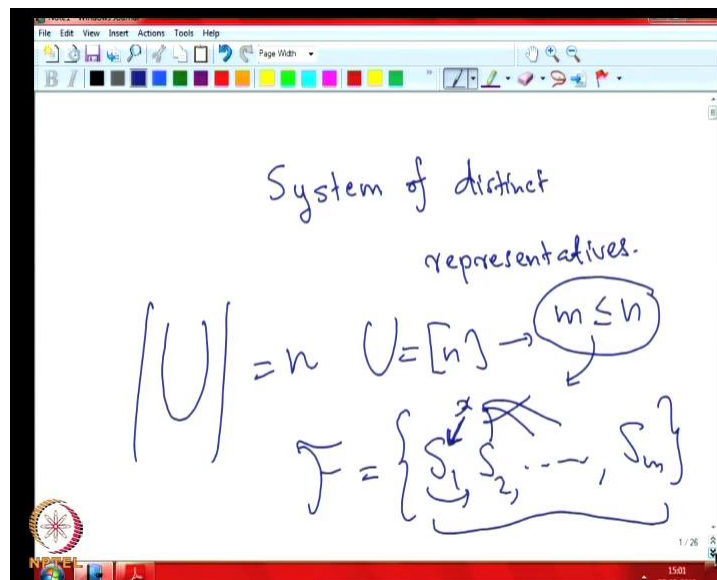 File Edit View Insert Actions Tools Help
Page Width
B I
System of distinct
representatives.
|U| = n U = [n] → m ≤ n
F = { S₁, S₂, ..., Sₘ }
x
1 / 26
NPTEL
15:01